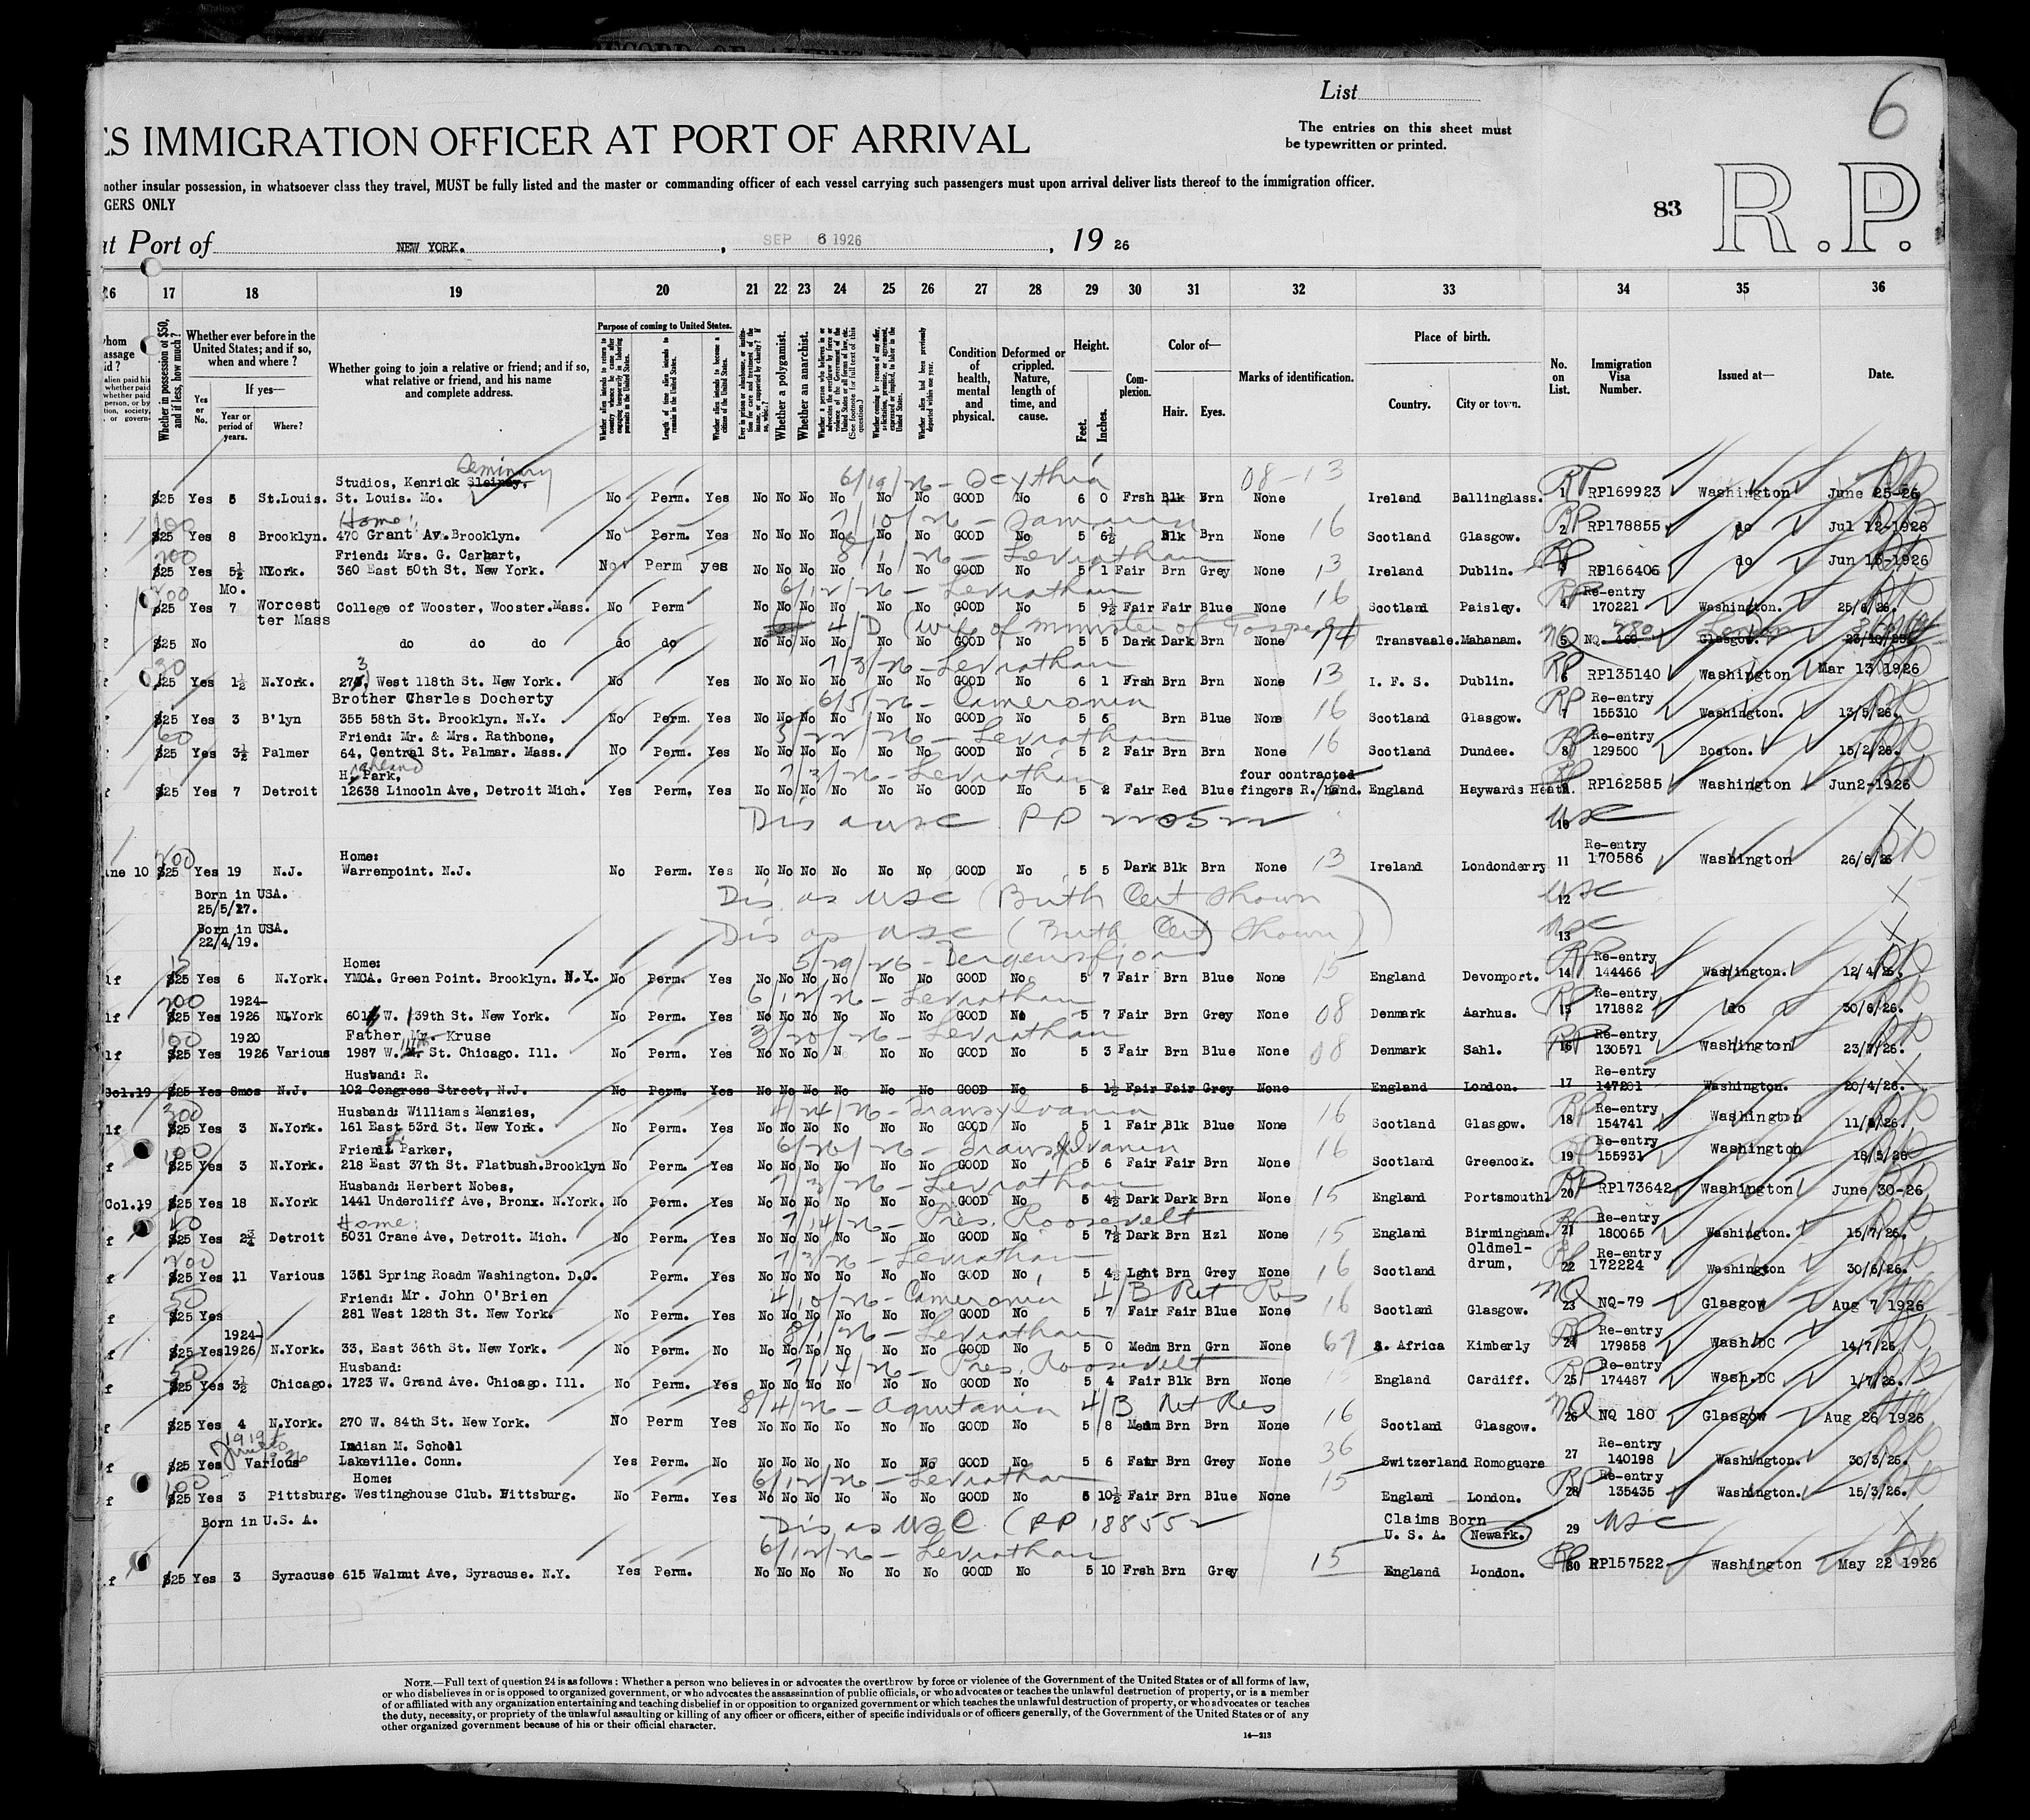 List
6
ES IMMIGRATION OFFICER AT PORT OF ARRIVAL
The entries on this sheet must
be typewritten or printed.
nother insular possession, in whatsoever class they travel, MUST be fully listed and the master or commanding officer of each vessel carrying such passengers must upon arrival deliver lists thereof to the immigration officer.
GERS ONLY
83 R.P.
at Port of NEW YORK. , SEP 6 1926 , 19 26
16 17 18 19 20 21 22 23 24 25 26 27 28 29 30 31 32 33 34 35 36
Whether in possession of $50, and if less, how much?
Whether ever before in the United States; and if so, when and where?
Yes or No. If yes— Year or period of years. Where?
Whether going to join a relative or friend; and if so, what relative or friend, and his name and complete address.
Purpose of coming to United States.
Whether a polygamist.
Whether an anarchist.
Condition of health, mental and physical.
Deformed or crippled. Nature, length of time, and cause.
Height. Feet. Inches.
Complexion.
Color of— Hair. Eyes.
Marks of identification.
Place of birth. Country. City or town.
No. on List.
Immigration Visa Number.
Issued at—
Date.
Seminary
Studios, Kenrick Sleinay, 6/19/26 - Scythia 08-13
$25 Yes 5 St.Louis. St. Louis. Mo. No Perm. Yes No No No No No No GOOD No 6 0 Frsh Blk Brn None Ireland Ballinglass. 1 RP169923 Washington June 25-26
Home: 7/10/26 - 16
$25 Yes 8 Brooklyn. 470 Grant Av.Brooklyn. No Perm. Yes No No No No No No GOOD No 5 6½ Blk Brn Scotland Glasgow. 2 RP178855 do Jul 12-1926
200 Friend: Mrs. G. Carhart, 8/1/26 - Leviathan
$25 Yes 5½ NYork. 360 East 50th St. New York. No Perm yes No No No No No No GOOD No 5 1 Fair Brn Grey None 13 Ireland Dublin. RP166406 do Jun 15-1926
200 Mo. 6/12/26 - Leviathan 16 Re-entry
$25 Yes 7 Worcest ter Mass College of Wooster, Wooster.Mass. No Perm No No No No No No GOOD No 5 9½ Fair Fair Blue None Scotland Paisley. 4 170221 Washington. 25/6/26.
4/D (wife of minister of Gospel)
$25 No do do do do do No No No No No No GOOD No 5 5 Dark Dark Brn None Transvaale. Mahanam. 5 NQ 280 Glasgow. 23/10/25
30 3 7/3/26 - Leviathan
$25 Yes 1½ N.York. 27 West 118th St. New York. No Yes No No No No No No GOOD No 6 1 Frsh Brn Brn None 13 I. F. S. Dublin. 6 RP135140 Washington Mar 13 1926
Brother Charles Docherty 6/5/26 - Cameronia 16 Re-entry
$25 Yes 3 B'lyn 355 58th St. Brooklyn. N.Y. No Perm. Yes No No No No No No GOOD No 5 6 Brn Blue None Scotland Glasgow. 7 155310 Washington. 13/5/26.
60 Friend: Mr. & Mrs. Rathbone, 3/22/26 - Leviathan Re-entry
$25 Yes 3½ Palmer 64, Central St. Palmar. Mass. No Perm. Yes No No No No No No GOOD No 5 2 Fair Brn Brn None 16 Scotland Dundee. 8 129500 Boston. 15/2/26.
H. Park, 7/3/26 - Leviathan four contracted
$25 Yes 7 Detroit 12638 Lincoln Ave, Detroit Mich. Yes Perm. Yes No No No No No No GOOD No 5 2 Fair Red Blue fingers R. hand. England Haywards Heath. RP162585 Washington Jun2-1926
Dis as USC PP 22052 10 USC X
200 Home: 13 Re-entry
ine 10 $25 Yes 19 N.J. Warrenpoint. N.J. No Perm. Yes No No No No No No GOOD No 5 5 Dark Blk Brn None Ireland Londonderry 11 170586 Washington 26/6/26
Born in USA. Dis. as USC (Birth Cert Shown 12 USC X
25/5/17.
Born in USA. Dis as USC (Birth Cert Shown) 13 USC X
22/4/19.
Home: 5/29/26 - Bergensfjord Re-entry
lf $25 Yes 6 N.York. YMCA. Green Point. Brooklyn. N.Y. No Perm. Yes No No No No No No GOOD No 5 7 Fair Brn Blue None 15 England Devonport. 14 144466 Washington. 12/4/26.
200 1924- 6/12/26 - Leviathan Re-entry
lf $25 Yes 1926 NLYork 601 W. 139th St. New York. No Perm. Yes No No No No No No GOOD No 5 7 Fair Brn Grey None 08 Denmark Aarhus. 15 171882 do 30/6/26.
100 1920 Father Mr. Kruse 3/20/26 - Leviathan Re-entry
lf $25 Yes 1926 Various 1987 W. St. Chicago. Ill. No Perm. Yes No No No N No No GOOD No 5 3 Fair Brn Blue None 08 Denmark Sahl. 16 130571 Washington 23/7/26.
Husband: R. Re-entry
Col.19 $25 Yes 8mos N.J. 102 Congress Street, N.J. No Perm. Yes No No No No No No GOOD No 5 1½ Fair Fair Grey None England London. 17 147201 Washington. 20/4/26. X
300 Husband: Williams Menzies, 4/24/26 - Transylvania 16 Re-entry
lf $25 Yes 3 N.York. 161 East 53rd St. New York. No Perm. Yes No No No No No No GOOD No 5 1 Fair Blk Blue None Scotland Glasgow. 18 154741 Washington
100 Friend: Parker, 6/26/26 - Transylvania 16 Re-entry
f $25 Yes 3 N.York. 218 East 37th St. Flatbush.Brooklyn No Perm. Yes No No No No No No GOOD No 5 6 Fair Fair Brn None Scotland Greenock. 19 155931 Washington 18/5/26
Husband: Herbert Nobes, 7/3/26 - Leviathan
Col.19 $25 Yes 18 N.York 1441 Undercliff Ave, Bronx. N.York. No Perm. Yes No No No No No No GOOD No 5 4½ Dark Dark Brn None 15 England Portsmouth 20 RP173642 Washington June 30-26
Home: 7/14/26 - Pres. Roosevelt Re-entry
f $25 Yes 2¾ Detroit 5031 Crane Ave, Detroit. Mich. No Perm. Yes No No No No No No GOOD No 5 7½ Dark Brn Hzl None 15 England Birmingham. 21 180065 Washington. 15/7/26.
200 7/3/26 - Leviathan Oldmel- Re-entry
f $25 Yes 11 Various 1351 Spring Roadm Washington. D.C. Perm. Yes No No No No No No GOOD No 5 4½ Lght Brn Grey None 16 Scotland drum, 22 172224 Washington 30/6/26.
50 Friend: Mr. John O'Brien 4/10/26 - Cameronia 4/B Ret Res
f $25 Yes 281 West 128th St. New York. No Perm. Yes No No No No No No GOOD No 5 7 Fair Fair Blue None 16 Scotland Glasgow. 23 NQ-79 Glasgow Aug 7 1926
1924-) 8/1/26 - Leviathan Re-entry
f $25 Yes 1926) N.York. 33, East 36th St. New York. No Perm. No No No No No No No GOOD No 5 0 Medm Brn Grn None 67 S. Africa Kimberly 24 179858 Wash.DC 14/7/26.
50 Husband: 7/14/26 - Pres. Roosevelt Re-entry
f $25 Yes 3½ Chicago. 1723 W. Grand Ave. Chicago. Ill. No Perm. Yes No No No No No No GOOD No 5 4 Fair Blk Brn None 15 England Cardiff. 25 174487 Wash.DC 1/7/26.
8/4/26 - Aquitania 4/B Ret Res
f $25 Yes 4 N.York. 270 W. 84th St. New York. No Perm Yes No No No No No No GOOD No 5 8 Medm Brn Brn None 16 Scotland Glasgow. 26 NQ 180 Glasgow Aug 26 1926
1919 Indian M. School 36 Re-entry
f $25 Yes Various Lakeville. Conn. Yes Perm. No No No No No No No GOOD No 5 6 Fair Brn Grey None Switzerland Romoguere 27 140198 Washington. 30/3/26.
100 Home: 6/12/26 - Leviathan Re-entry
f $25 Yes 3 Pittsburg. Westinghouse Club. Pittsburg. No Perm. Yes No No No No No No GOOD No 5 10½ Fair Brn Blue None 15 England London. 28 135435 Washington. 15/3/26.
Born in U.S. A. Dis as USC (PP 188552 Claims Born U. S. A. Newark. 29 USC X
6/12/26 - Leviathan
f $25 Yes 3 Syracuse 615 Walnut Ave, Syracuse. N.Y. Yes Perm. No No No No No No GOOD No 5 10 Frsh Brn Grey 15 England London. 30 RP157522 Washington May 22 1926
NOTE.—Full text of question 24 is as follows: Whether a person who believes in or advocates the overthrow by force or violence of the Government of the United States or of all forms of law,
or who disbelieves in or is opposed to organized government, or who advocates the assassination of public officials, or who advocates or teaches the unlawful destruction of property, or is a member
of or affiliated with any organization entertaining and teaching disbelief in or opposition to organized government or which teaches the unlawful destruction of property, or who advocates or teaches
the duty, necessity, or propriety of the unlawful assaulting or killing of any officer or officers, either of specific individuals or of officers generally, of the Government of the United States or of any
other organized government because of his or their official character.
14—213